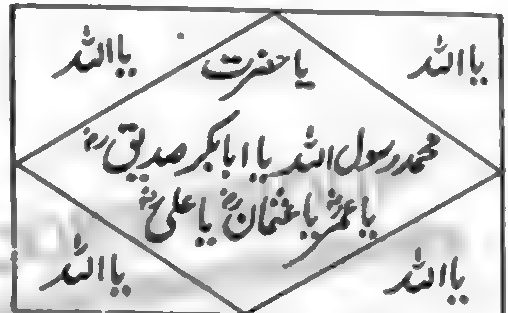 یا اللہ یا اللہ
یا حضرت
محمد رسول اللہ یا ابا بکر صدیق رضؓ
یا عمرؓ یا عثمانؓ یا علیؓ
یا اللہ یا اللہ